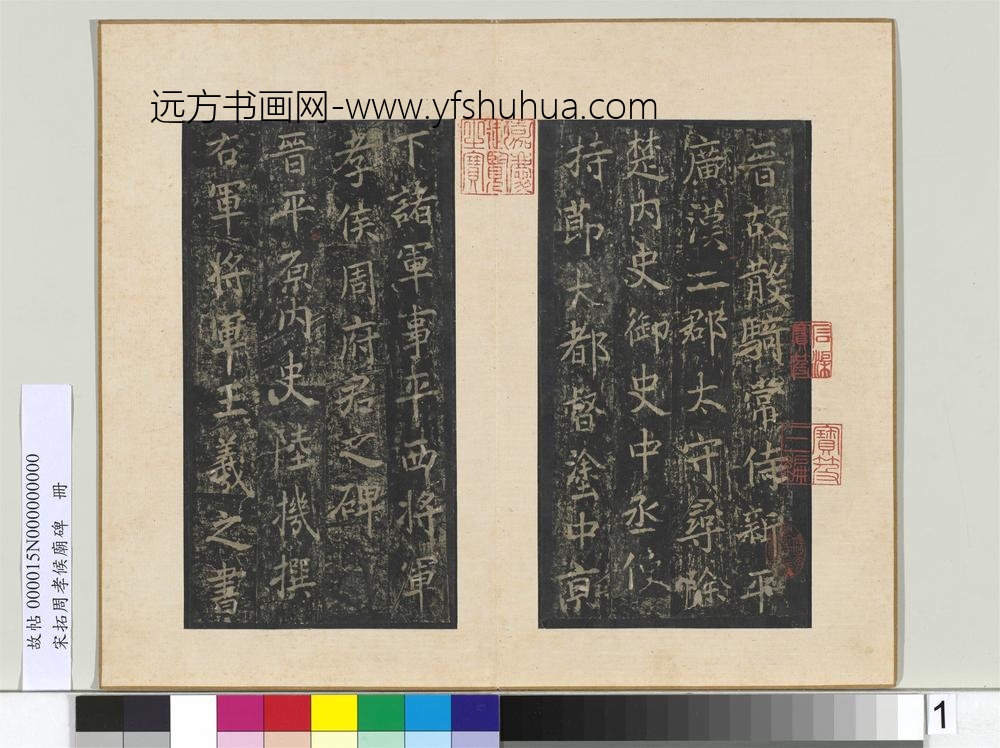 远方书画网-www.yfshuhua.com
晉故散騎常侍新平
廣漢二郡太守尋除
楚内史御史中丞使
持節大都督塗中京
下諸軍事平西將軍
孝侯周府君之碑
晉平原内史陸機撰
右軍將軍王羲之書
嘉慶御覽之寶
寶笈三編
故帖 000015N000000000
宋拓周孝候廟碑 冊
1